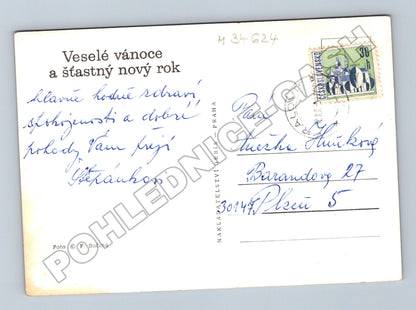 M 34 624
Veselé vánoce
a šťastný nový rok
hlavně hodně zdraví
spokojenosti a dobré
pohody Vám přejí
Štěpánkovi
Foto © F.
NAKLADATELSTVÍ ORBIS - PRAHA
ČESKOSLOVENSKO
30 h
Paní
Anežka Huňková
Barandova 27
30147 Plzeň 5
POHLEDNICE-GASH